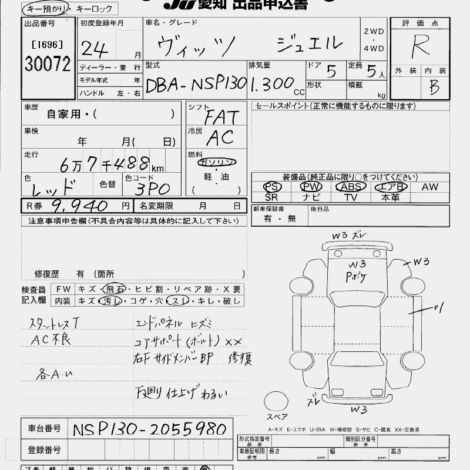 キー預かり・キーロック
JU愛知 出品申込書
出品番号 初度登録年月 車名・グレード 2WD・4WD 評価点
[1696] 24年 月 ヴィッツ ジュエル R
30072
ディーラー・並行 型式 排気量 ドア 定員 外装 内装
モデル年式 年 DBA-NSP130 1,300CC 5 5人 B
ハンドル 左・右 形状 積載 kg
車歴 自家用・( ) シフト FAT セールスポイント(正常に機能するものに限ります)
車検 年 月(日) 冷房 AC
走行 6万7千488km 燃料 ガソリン・軽油・( )
色 レッド 色替 色コード 3P0
装備品(純正品に限り○をつけてください)
PS PW ABS エアB AW
SR ナビ TV 本革
R券 9,940円 名変期限 年 月 日
新車保証書 有・無 後日品
注意事項申告欄(不具合内容等は具体的に記入して下さい)
修復歴 有(箇所 )
検査員記入欄 FW キズ・飛石・ヒビ割・リペア跡・X要
内装 キズ・汚レ・コゲ・穴・スレ・キレ・破し
スタットレスT エンドパネル ヒズミ
AC不良 コアサポート(ボルト)××
右F サイドメンバーBP 修復
各A.U
下廻り仕上げわるい
W3 ズレ
W3
W3
Pボケ
ズレ
W3
スペア
A-キズ E-エクボ U-凹み W-補修跡 S-サビ C-腐食 XX-交換済
車台番号 NSP130-2055980
登録番号
形式指定番号 類別区分番号
参考 長 cm 幅 cm 高 cm